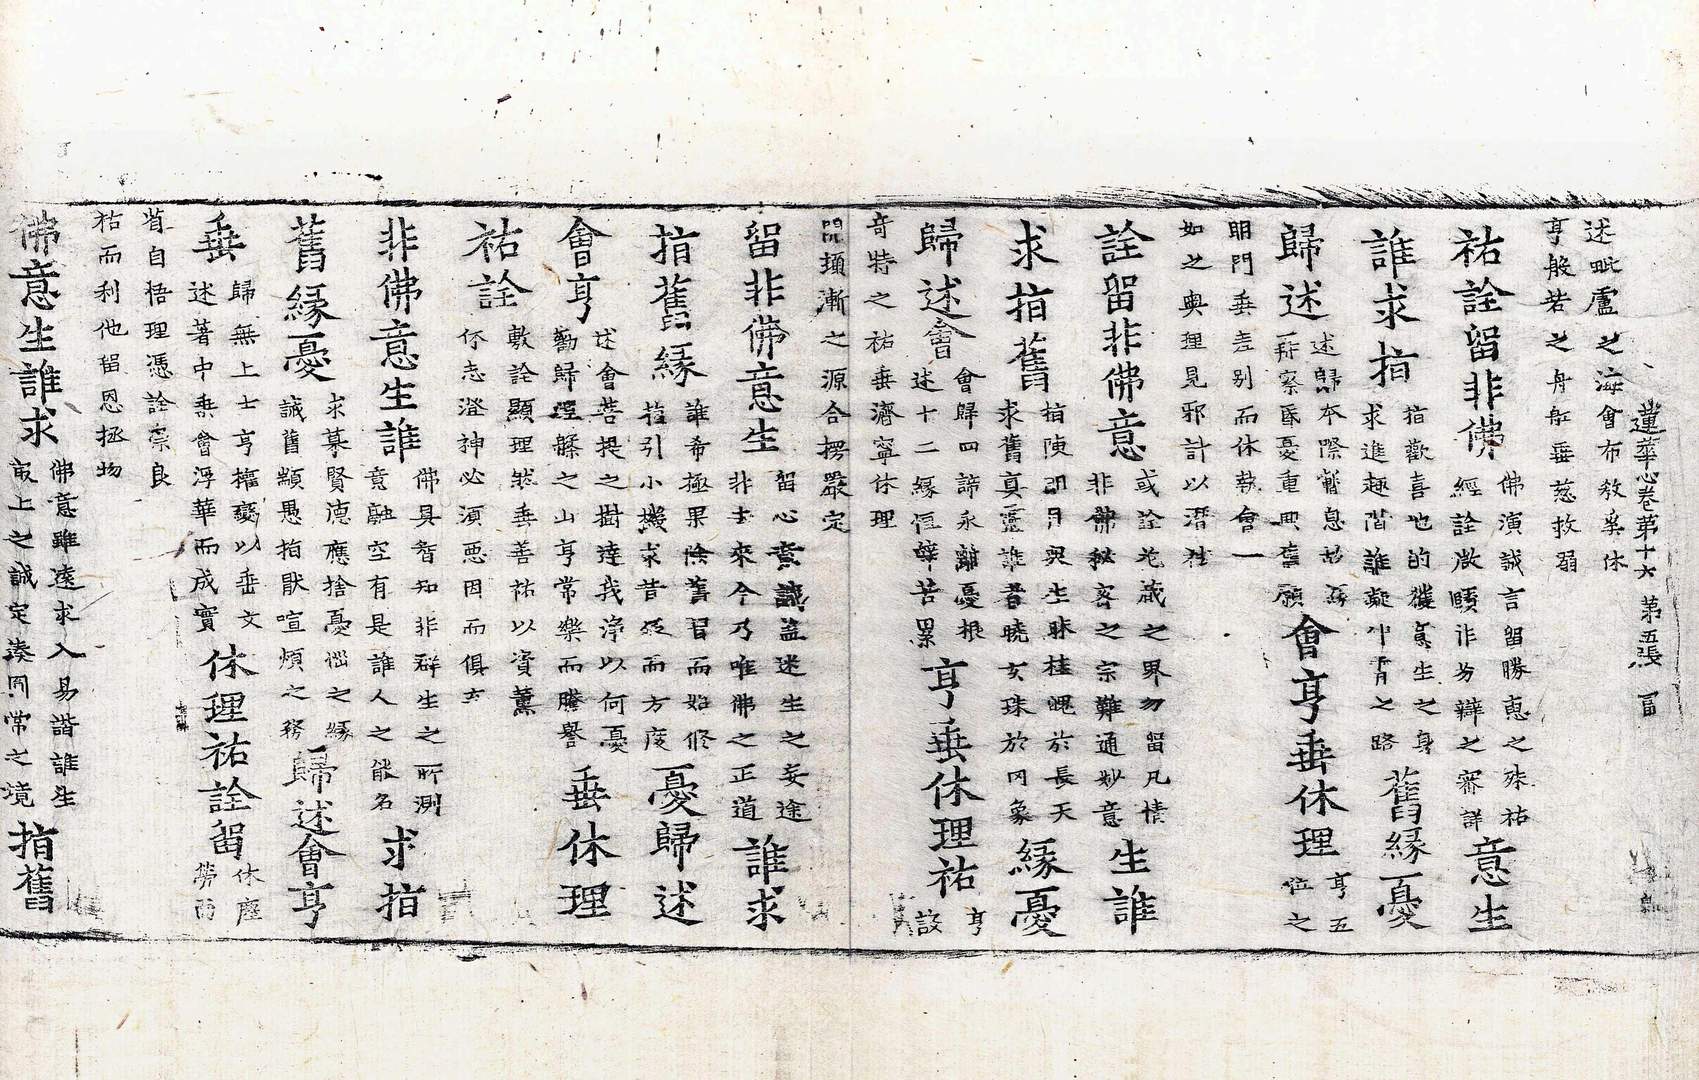 蓮華心卷第十六 第五張 冒
述毗盧之海會布敎乘休
亨般若之舟舡垂慈救弱
祐詮留非佛
佛演誠言留勝惠之殊祐
經詮微賾詐勞辯之審詳
意生
誰求指
指歡喜地的獲眞生之身
求進趣階誰凝中宵之路
舊緣憂
歸述
述歸本際暫息故
察憂重興舊願
會亨垂休理
亨五
位之
明門垂差別而休執會一
如之奧理見邪計以潛祛
詮留非佛意
或詮光嚴之界勿留凡情
非佛秘密之宗難通妙意
生誰
求指舊
指陳即月與生昧桂魄於長天
求舊真靈誰者曉玄珠於罔象
緣憂
歸述會
會歸四諦永離憂根
述十二緣恒辭苦累
亨垂休理祐
亨
設
奇特之祐垂濟寧休理
開頓漸之源合楞嚴定
留非佛意生
留心意識盖迷生之妄途
非去來今乃唯佛之正道
誰求
指舊緣
誰希極果除舊習而始修
指引小機求昔返而方度
憂歸述
會亨
述會菩提之樹達我淨以何憂
勸歸之山亨常樂而騰譽
垂休理
祐詮
敷詮顯理然垂善祐以資薰
休志澄神必須惡因而俱去
非佛意生誰
佛具智知非群生之所測
意融空有是誰人之能名
求指
舊緣憂
求慕賢德應捨憂惱之緣
誡舊顓愚指猒喧煩之務
歸述會亨
垂
歸無上士亨權變以垂文
述著中乘會浮華而成實
休理祐詮留
休塵
勞而
省自悟理憑詮宗良
祐而利他留恩拯物
佛意生誰求
佛意雖遠求入易諧誰生
最上之誠定湊同常之境
指舊